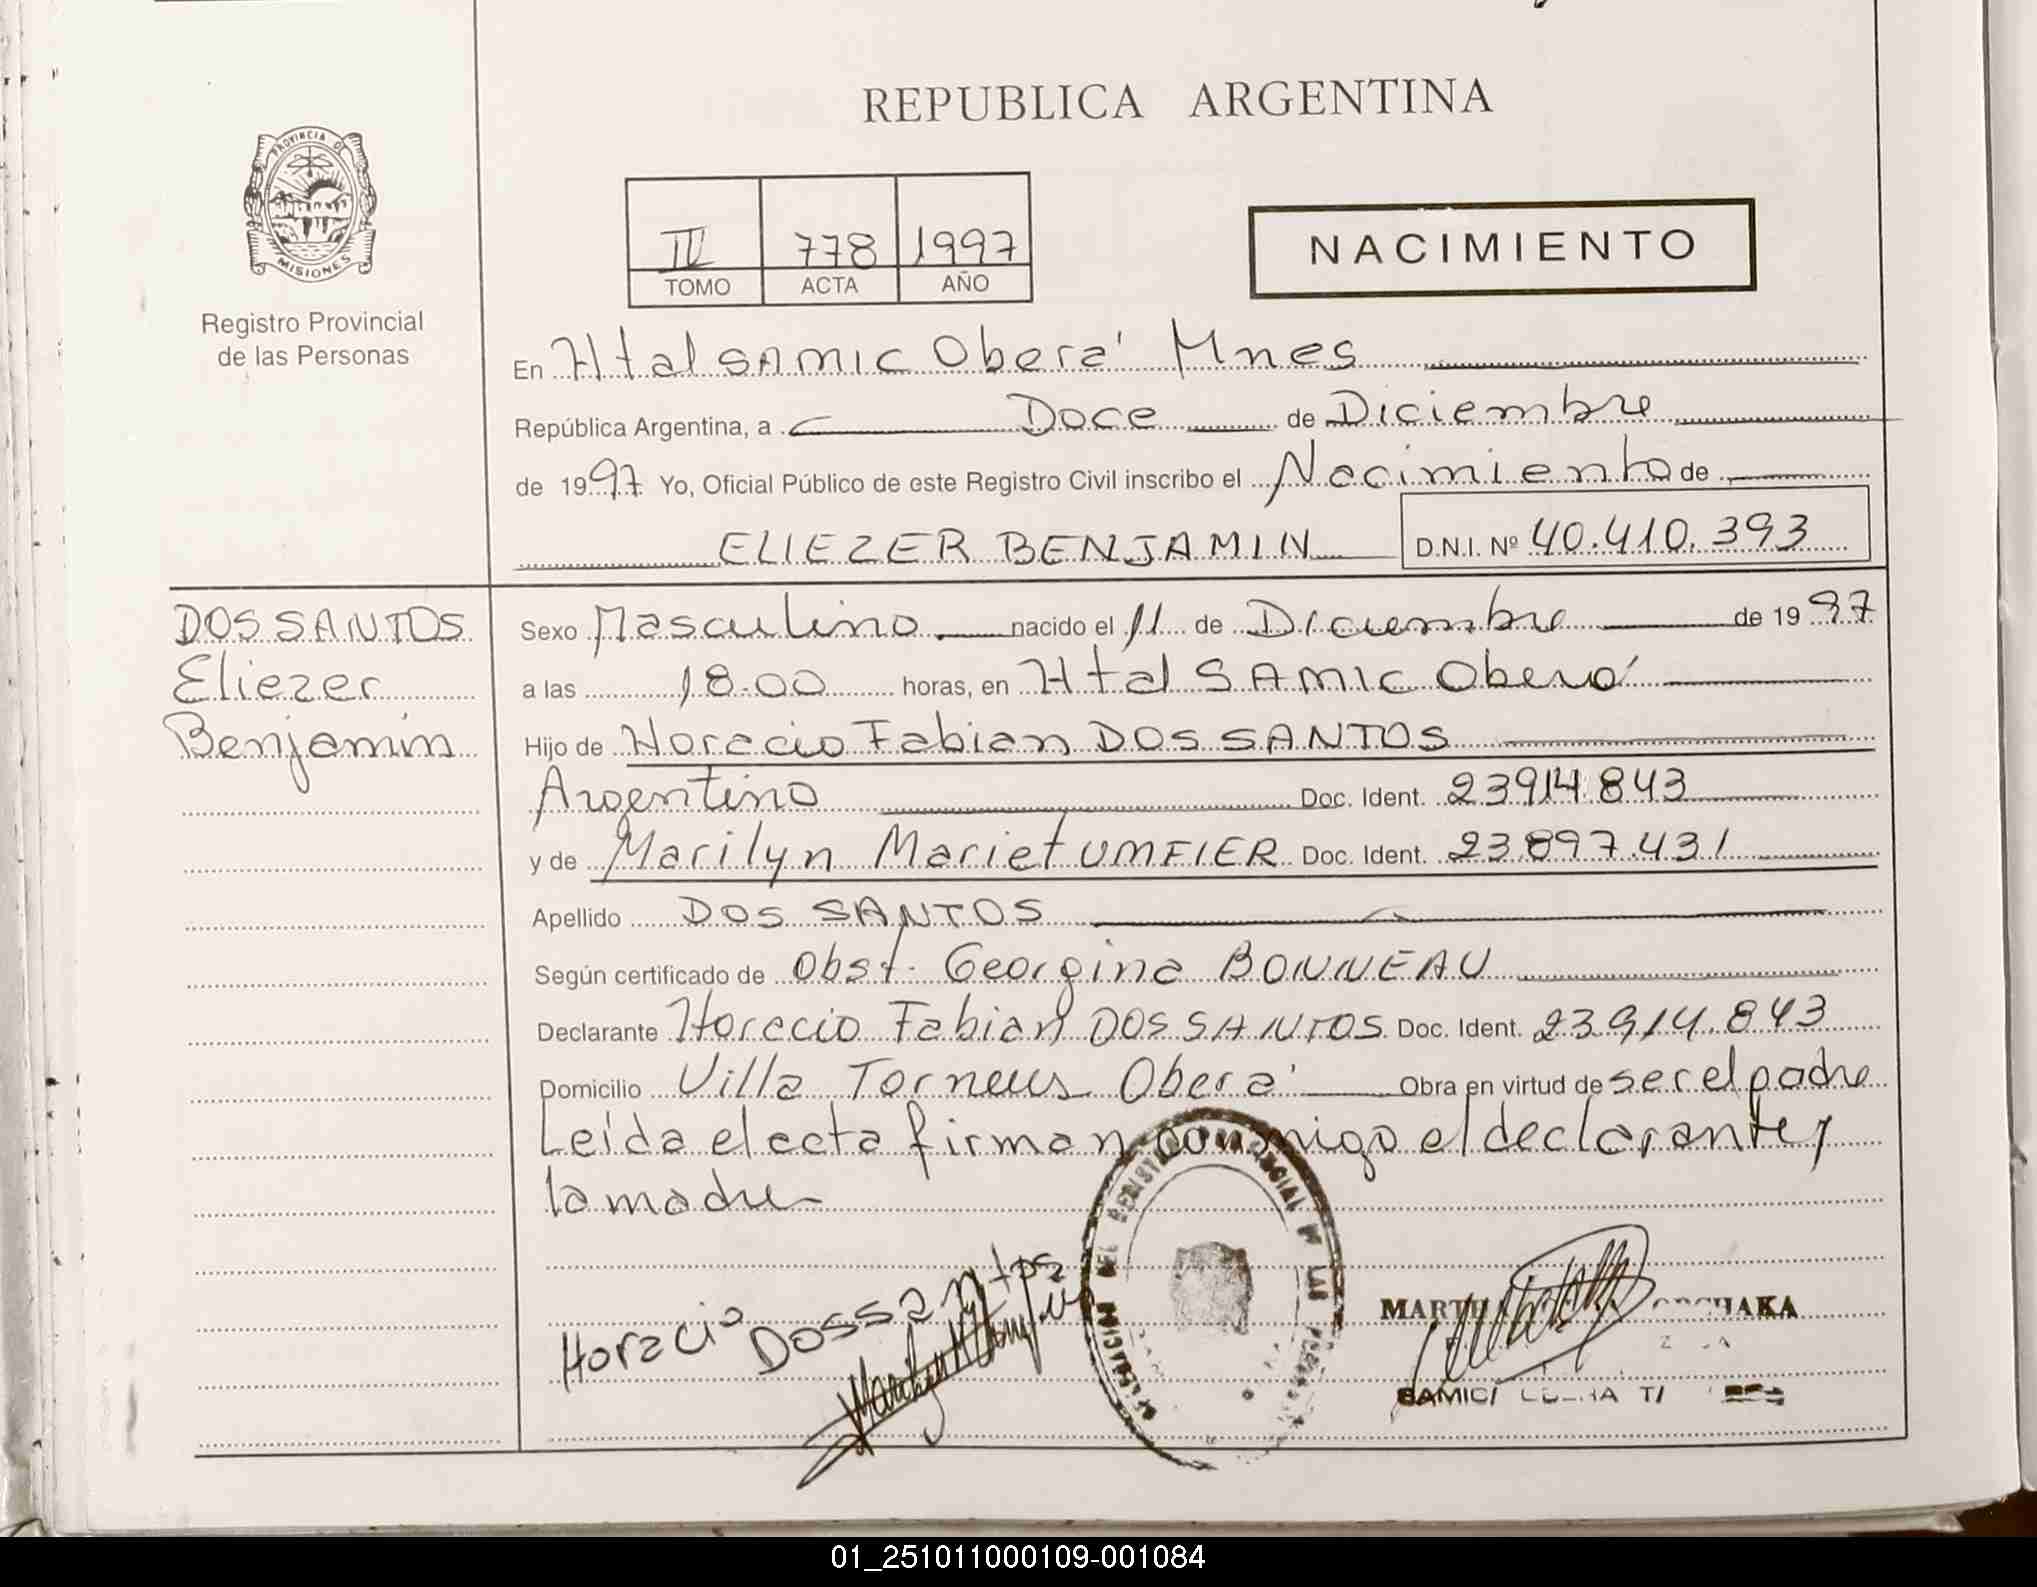 REPUBLICA ARGENTINA
PROVINCIA DE
MISIONES
Registro Provincial
de las Personas
III 778 1997
TOMO ACTA AÑO
NACIMIENTO
En Htal SAMIC Oberá Mnes
República Argentina, a Doce de Diciembre
de 1997 Yo, Oficial Público de este Registro Civil inscribo el Nacimiento de
ELIEZER BENJAMIN D.N.I. Nº 40.410.393
DOS SANTOS
Eliezer
Benjamin
Sexo Masculino nacido el 11 de Diciembre de 1997
a las 18.00 horas, en Htal SAMIC Oberá
Hijo de Horacio Fabian DOS SANTOS
Argentino Doc. Ident. 23914.843
y de Marilyn Mariet UMFIER Doc. Ident. 23.897.431
Apellido DOS SANTOS
Según certificado de Obst. Georgina BONNEAU
Declarante Horacio Fabian DOS SANTOS Doc. Ident. 23.914.843
Domicilio Villa Torneus Oberá Obra en virtud de ser el padre
Leída el acta firman conmigo el declarante y
la madre
Horacio Dossantos
01_251011000109-001084